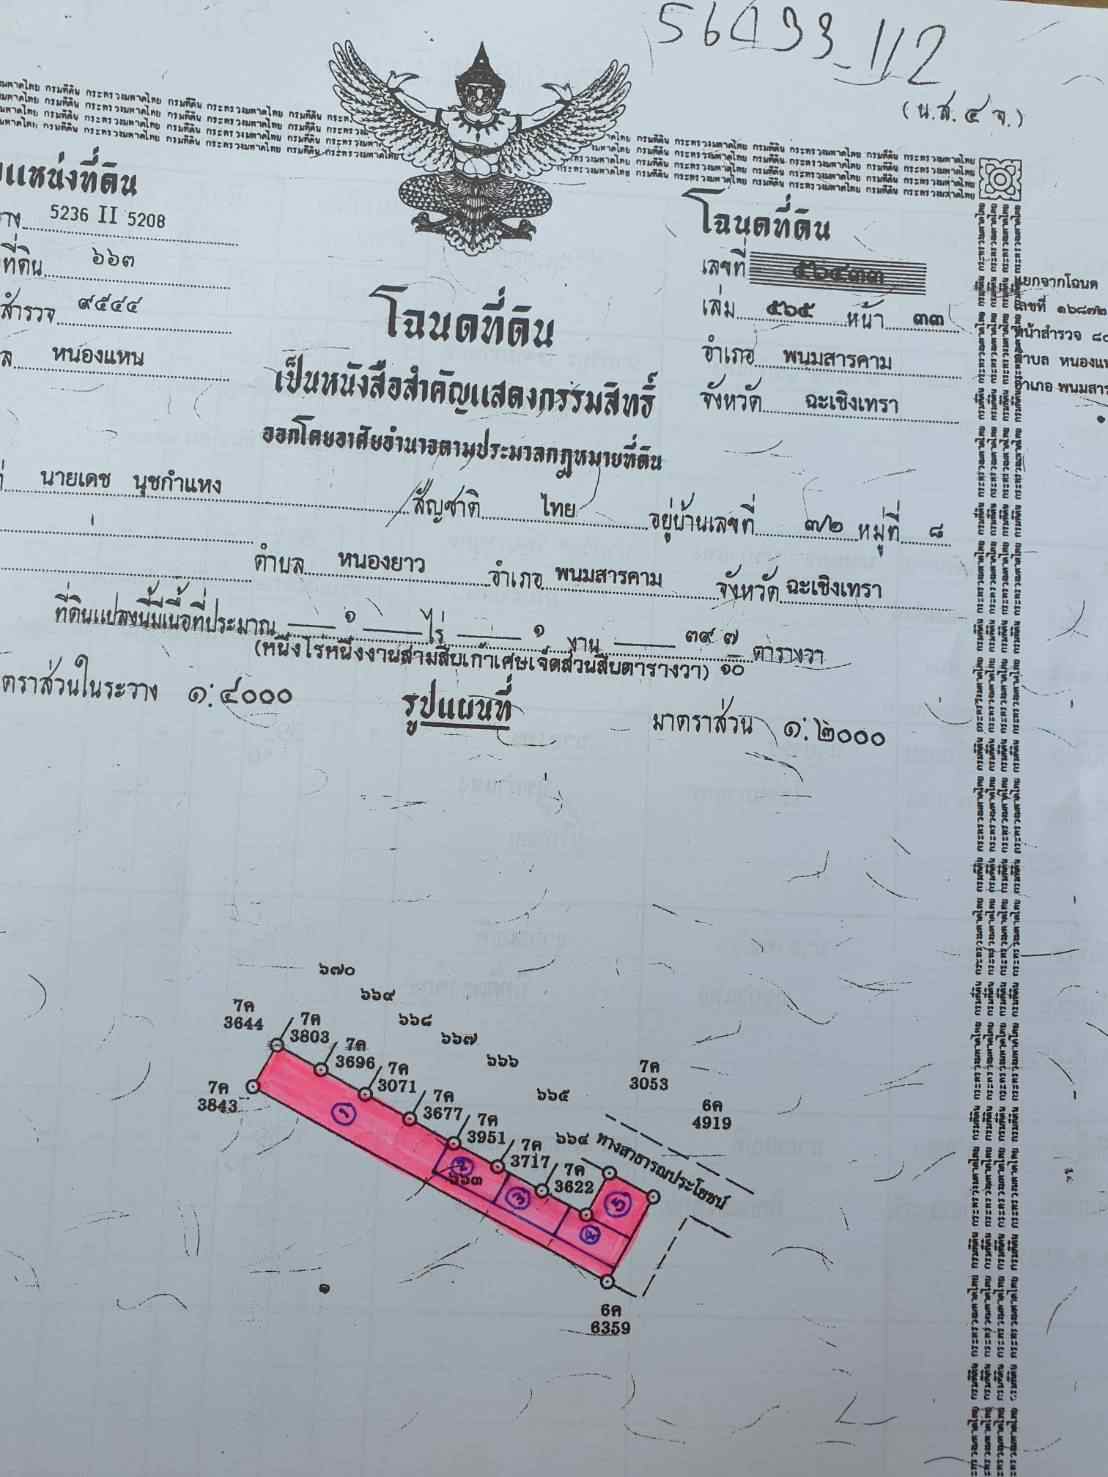 56433_112
(น.ส.๔ จ.)
แหน่งที่ดิน
5236 II 5208
ที่ดิน ๖๖๓
สำรวจ ๙๕๔๔
ล หนองแหน
โฉนดที่ดิน
เลขที่ ๕๖๔๓๓
เล่ม ๕๖๕ หน้า ๓๓
อำเภอ พนมสารคาม
จังหวัด ฉะเชิงเทรา
แยกจากโฉนด
เลขที่ ๑๖๘๗๒
หน้าสำรวจ
ตำบล หนองแห
อำเภอ พนมสาร
โฉนดที่ดิน
เป็นหนังสือสำคัญแสดงกรรมสิทธิ์
ออกโดยอาศัยอำนาจตามประมวลกฎหมายที่ดิน
นายเดช นุชกำแหง สัญชาติ ไทย อยู่บ้านเลขที่ ๓/๒ หมู่ที่ ๘
ตำบล หนองยาว อำเภอ พนมสารคาม จังหวัด ฉะเชิงเทรา
ที่ดินแปลงนี้มีเนื้อที่ประมาณ ๑ ไร่ ๑ งาน ๓๙ ๗/๑๐ ตารางวา
(หนึ่งไร่หนึ่งงานสามสิบเก้าเศษเจ็ดส่วนสิบตารางวา)
ตราส่วนในระวาง ๑:๔๐๐๐
รูปแผนที่
มาตราส่วน ๑:๒๐๐๐
๖๗๐
๖๖๙
๖๖๘
๖๖๗
๖๖๖
๖๖๕
๖๖๔
7ค 3644
7ค 3803
7ค 3696
7ค 3071
7ค 3677
7ค 3951
7ค 3717
7ค 3622
7ค 3053
6ค 4919
7ค 3843
ทางสาธารณประโยชน์
๑
๒
๖๖๓
๓
๔
๕
6ค 6359